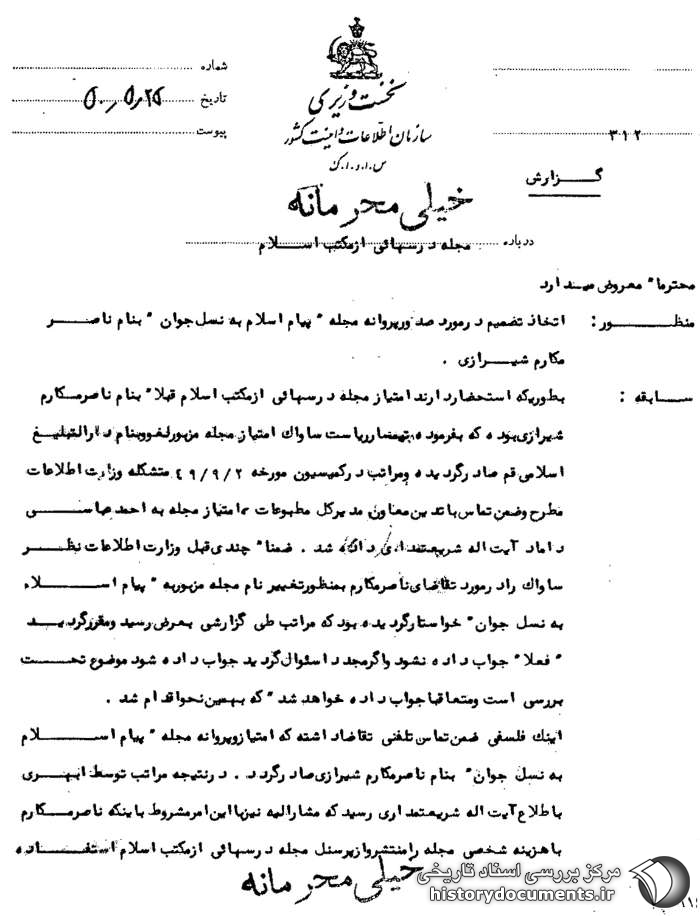 نخست وزیری
سازمان اطلاعات و امنیت کشور
س.ا.و.ا.ک
شماره
تاریخ ۵۰/۵/۲۵
پیوست
۳۱۲
گزارش
خیلی محرمانه
درباره مجله درسهائی از مکتب اسلام
محترما" معروض میدارد
منظور : اتخاذ تضمیم در مورد صدور پروانه مجله " پیام اسلام به نسل جوان " بنام ناصر
مکارم شیرازی .
سابقه : بطوریکه استحضار دارند امتیاز مجله درسهائی از مکتب اسلام قبلا" بنام ناصر مکارم
شیرازی بوده که بفرموده تیمسار ریاست ساواک امتیاز مجله مزبور لغو و بنام دارالتبلیغ
اسلامی قم صادر گردیده و مراتب در کمیسیون مورخه ۴۹/۹/۲ متشکله وزارت اطلاعات
مطرح و ضمن تماس با تدین معاون مدیر کل مطبوعات ، امتیاز مجله به احمد عباسی
داماد آیت اله شریعتمداری داده شد . ضمنا" چندی قبل وزارت اطلاعات نظر
ساواک را در مورد تقاضای ناصر مکارم بمنظور تغییر نام مجله مزبور به " پیام اسلام
به نسل جوان " خواستار گردیده بود که مراتب طی گزارشی بعرض رسید و مقرر گردید
" فعلا" جواب داده نشود و اگر مجددا سئوال گردید جواب داده شود موضوع تحت
بررسی است و متعاقبا جواب داده خواهد شد " که بهمین نحو اقدام شد .
اینک فلسفی ضمن تماس تلفنی تقاضا داشته که امتیاز و پروانه مجله " پیام اسلام
به نسل جوان " بنام ناصر مکارم شیرازی صادر گردد . در نتیجه مراتب توسط ابهری
باطلاع آیت اله شریعتمداری رسید که مشارالیه نیز با این امر مشروط باینکه ناصر مکارم
با هزینه شخصی مجله را منتشر و از پرسنل مجله درسهائی از مکتب اسلام استفاده
خیلی محرمانه
مرکز بررسی اسناد تاریخی
historydocuments.ir